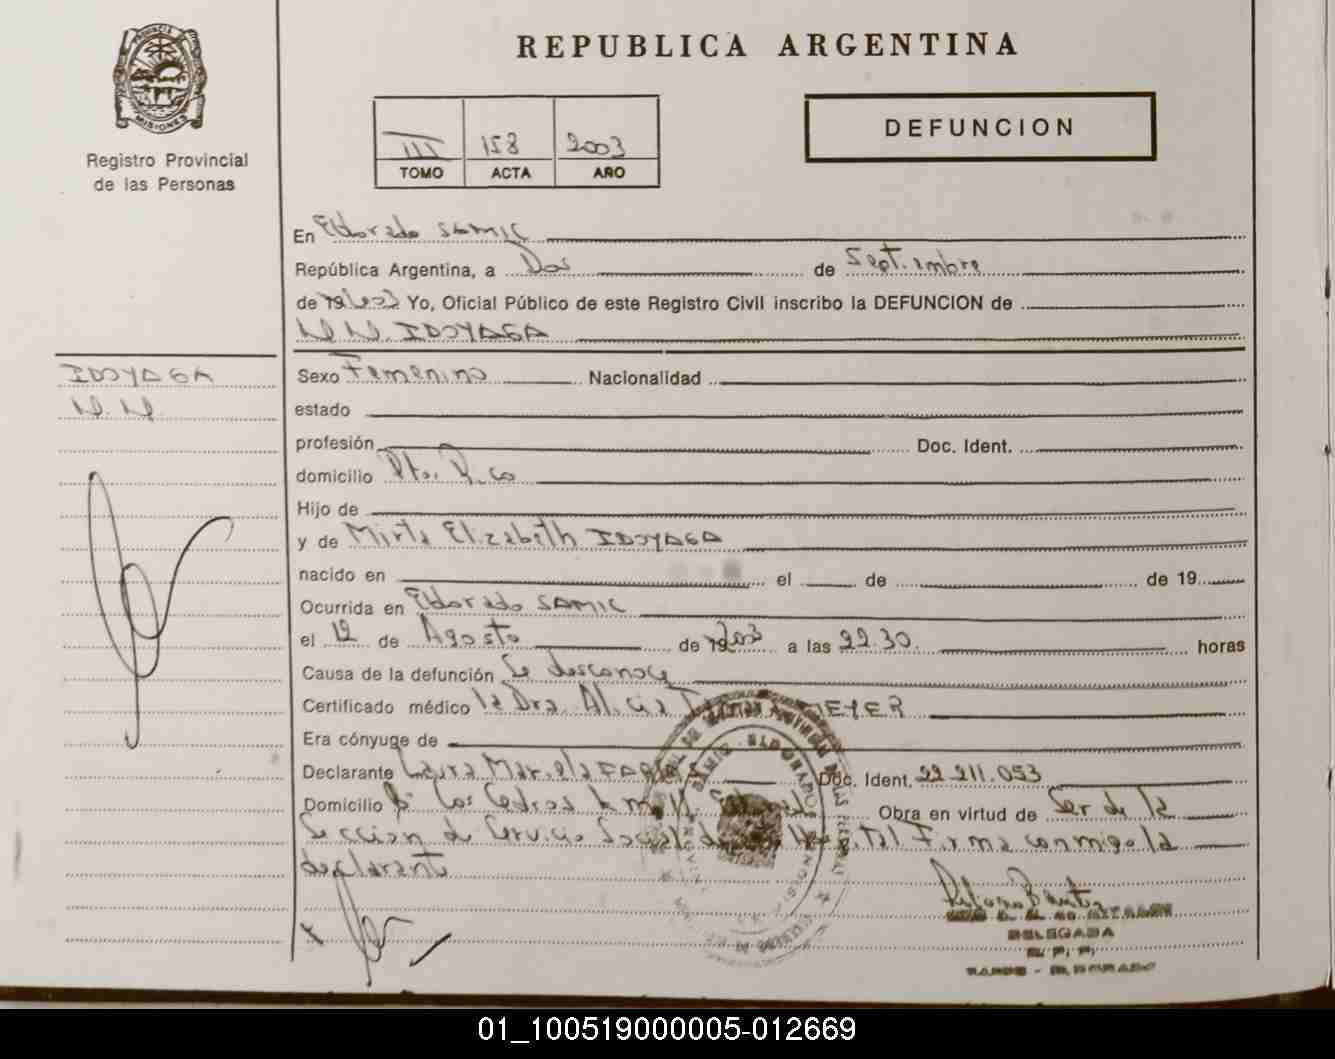 PROVINCIA DE
MISIONES
Registro Provincial
de las Personas
REPUBLICA ARGENTINA
III 158 2003
TOMO ACTA AÑO
DEFUNCION
En Eldorado SAMIC
República Argentina, a Dos de Septiembre
de 19 2003 Yo, Oficial Público de este Registro Civil inscribo la DEFUNCION de
N.N. IDOYAGA
IDOYAGA
N.N.
Sexo Femenino Nacionalidad
estado
profesión Doc. Ident.
domicilio Pto. Rico
Hijo de
y de Mirta Elizabeth IDOYAGA
nacido en el de de 19
Ocurrida en Eldorado SAMIC
el 12 de Agosto de 2003 a las 22.30. horas
Causa de la defunción Se desconoce
Certificado médico la Dra. Alicia MEYER
Era cónyuge de
Declarante Laura Mariela Doc. Ident. 22.211.053
Domicilio Bº Los Cedros Obra en virtud de Ser de la
Sección de Servicio Social del Hospital Firma conmigo la
declarante
DELEGADA
R. P. P.
ELDORADO
01_100519000005-012669